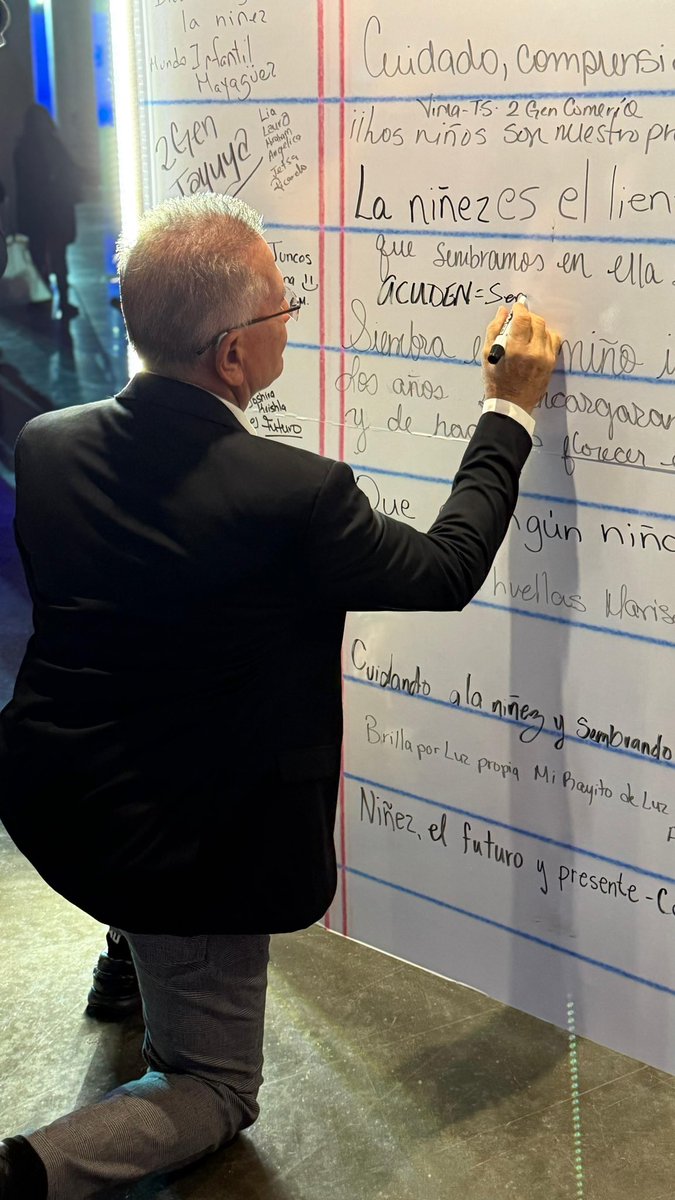 la niñez
Mundo Infantil
Mayagüez
2Gen
Jayuya
Lia
Laura
Angelica
Ricardo
Juncos
Joshira
Krishla
el Futuro
Cuidado, comprensi
Vima-TS. 2 Gen Comerío
¡¡Los niños son nuestro pr
La niñez es el lien
que sembramos en ella
ACUDEN = Sem
Siembra e niño i
Los años encargaran
y de hac florecer e
Que ngún niño
huellas Maris
Cuidando a la niñez y Sembrando
Brilla por Luz propia Mi Rayito de Luz
Niñez, el futuro y presente - Co